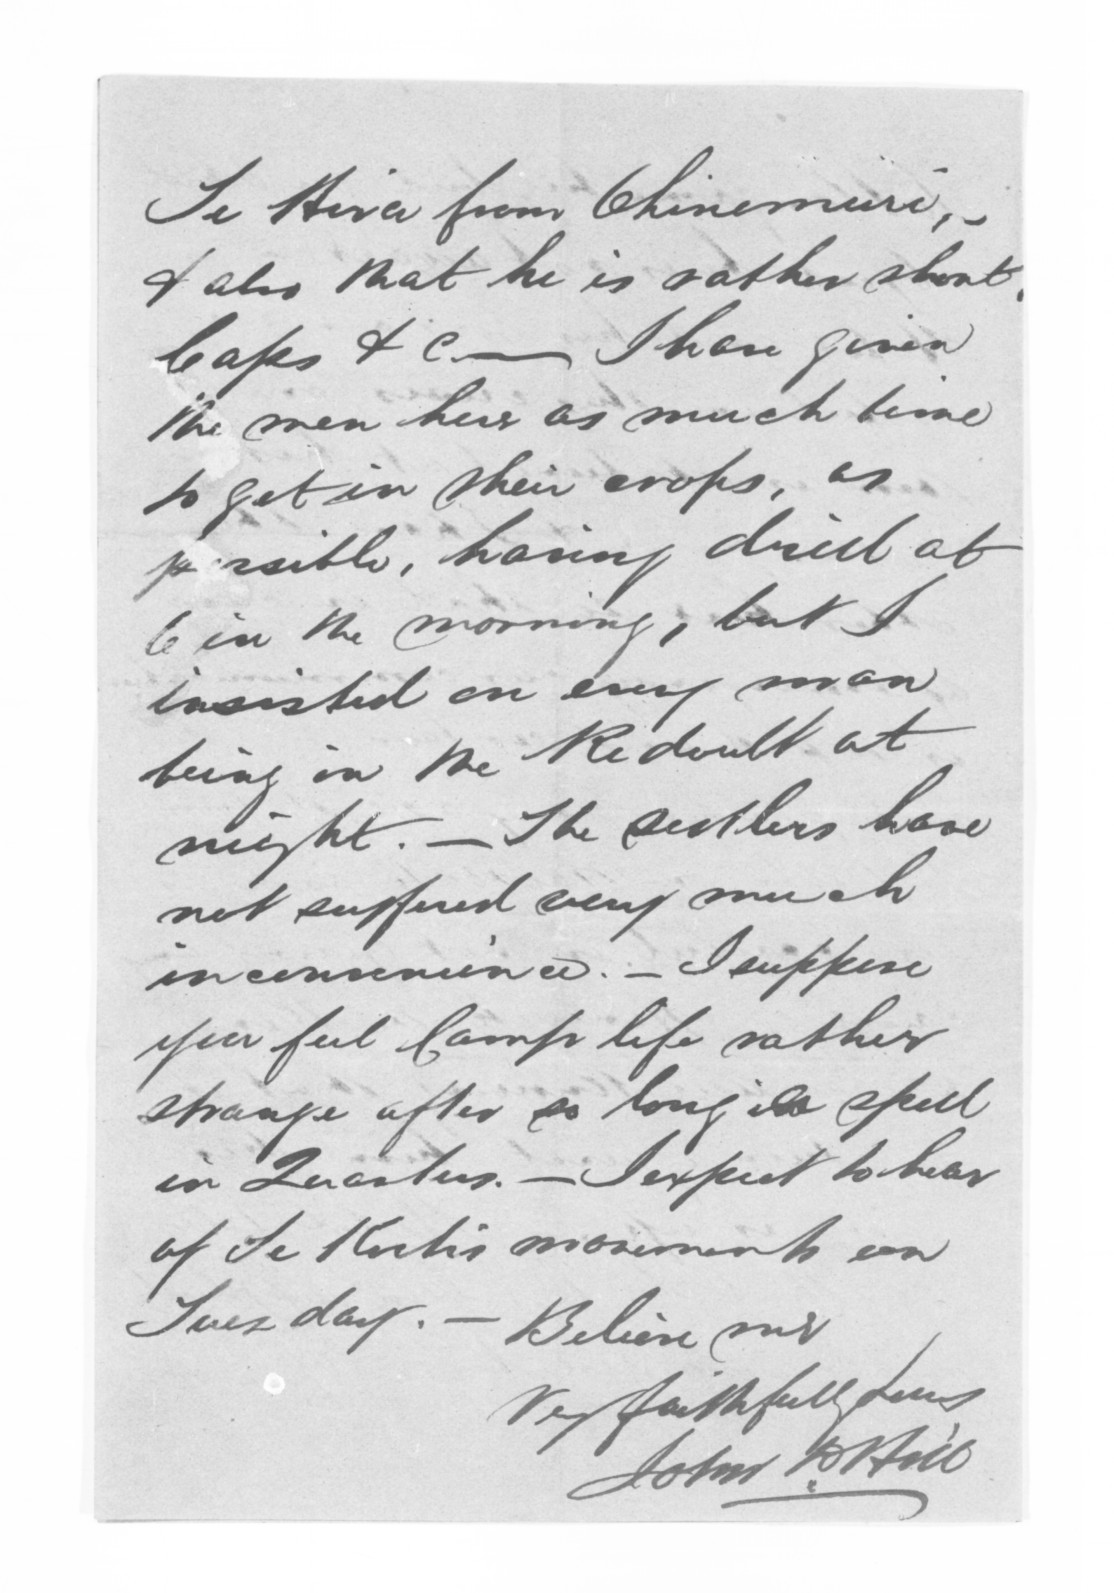 Te Hira from Ohinemuri, -
& also that he is rather short.
Caps & c — I have given
the men here as much time
to get in their crops, as
possible, having drill at
6 in the morning, but I
insisted on every man
being in the Redoubt at
night. - The settlers have
not suffered very much
inconvenience. - I suppose
you feel Camp life rather
strange after so long a spell
in Quarters. - I expect to hear
of Te Kootis movements on
Tuesday. - Believe me
Very faithfully yours
John Hill